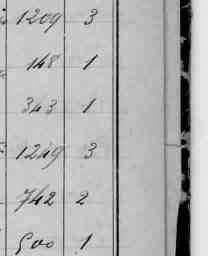 1209 3
148 1
343 1
1249 3
742 2
500 1